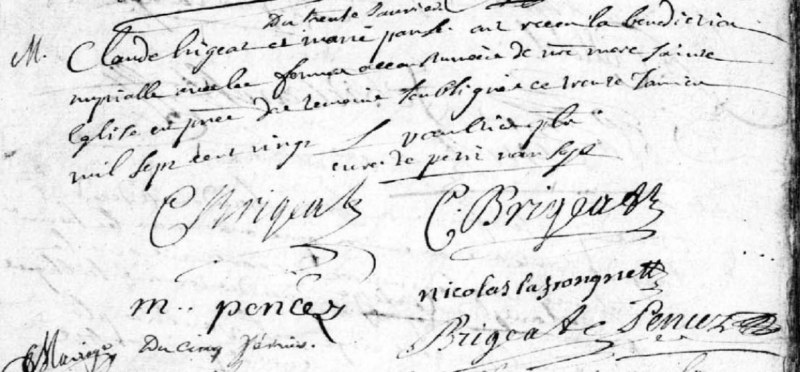 Du trente Janvier
M. Claude brigeat et marie pance. ont receu la benediction
nuptialle avec les formes accoustumées de nre mere Sainte
Eglise en pnce des temoins Soubsignés ce trente Janvier
mil sept cent vingt
C Brigeat C. Brigeat
m.. pencez nicolas
Brigeat Pencez
Mariage Du cinq février.